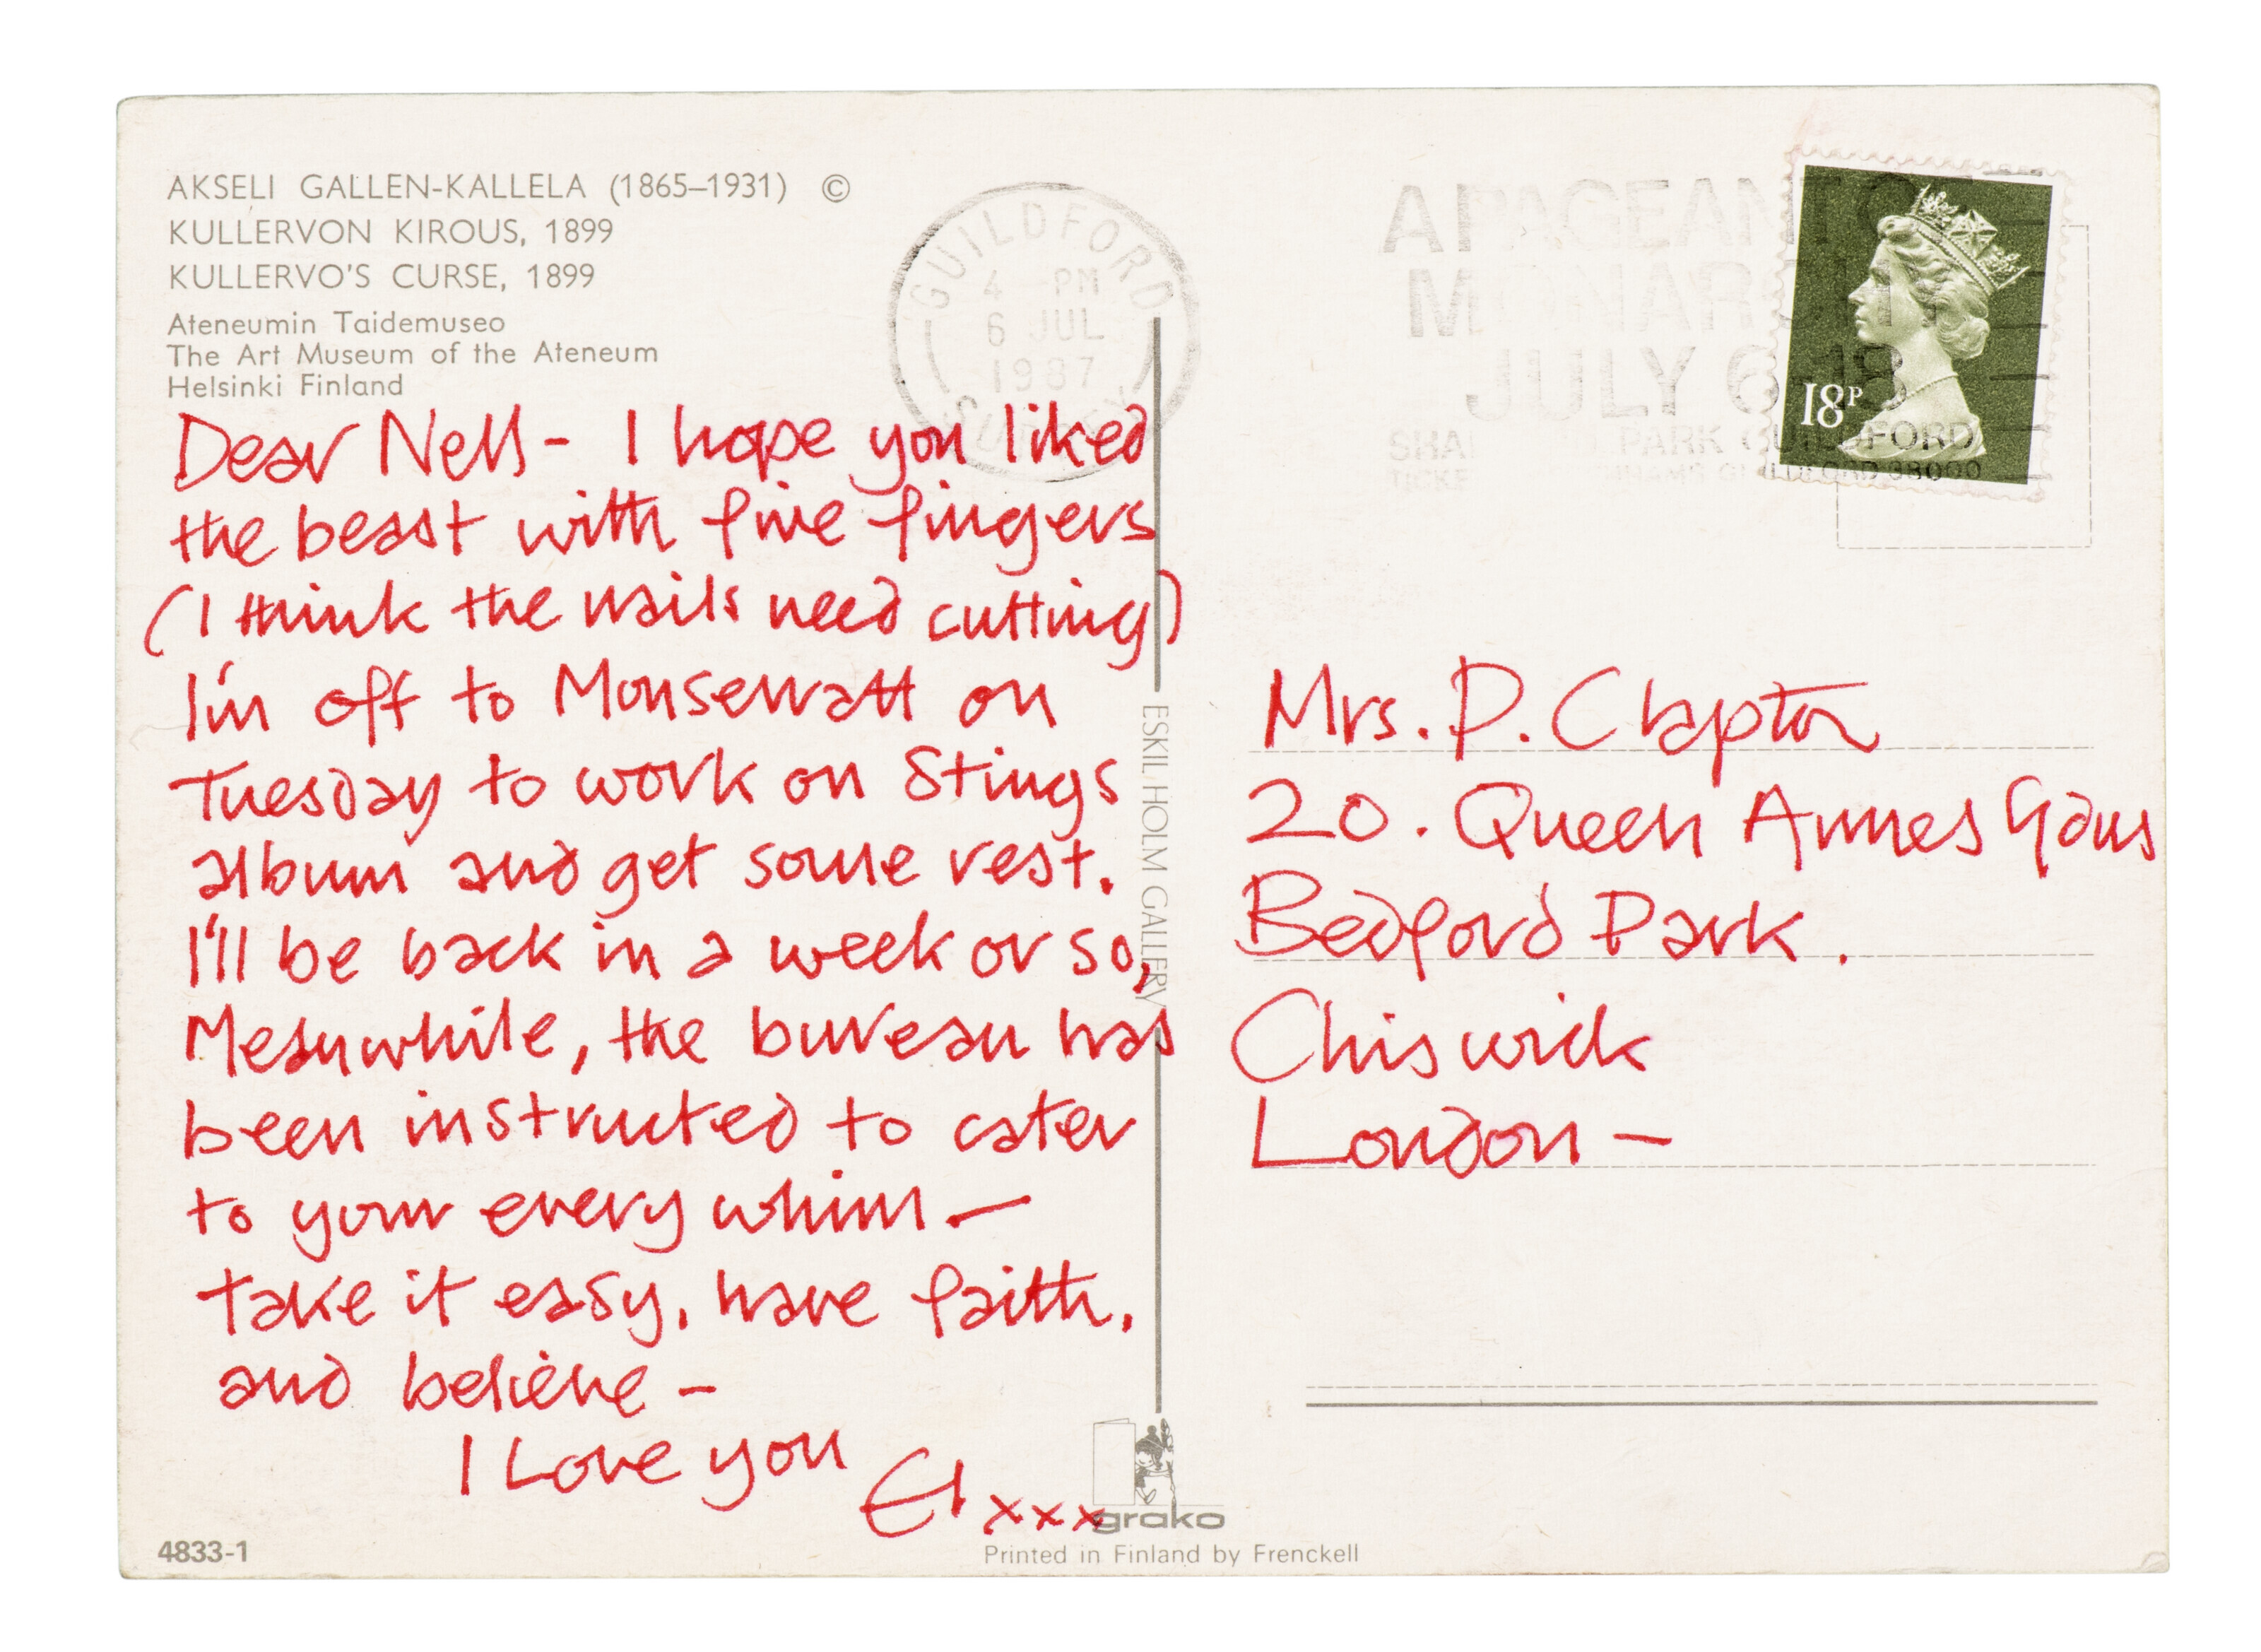 AKSELI GALLEN-KALLELA (1865–1931) ©
KULLERVON KIROUS, 1899
KULLERVO'S CURSE, 1899
Ateneumin Taidemuseo
The Art Museum of the Ateneum
Helsinki Finland
Dear Nell - I hope you liked
the beast with five fingers
(I think the nails need cutting)
I'm off to Monserratt on
Tuesday to work on Stings
album and get some rest.
I'll be back in a week or so,
Meanwhile, the bureau has
been instructed to cater
to your every whim —
take it easy, have faith,
and believe -
I Love you El xxx
4833-1
GUILDFORD
4 PM
6 JUL
1987
SURREY
ESKIL HOLM GALLERY
grako
Printed in Finland by Frenckell
A PAGEANT OF
MONARCHY
JULY 6-18
PARK GUILDFORD
GUILDFORD 38000
18P
Mrs. P. Clapton
20. Queen Annes Gdns
Bedford Park.
Chiswick
London —